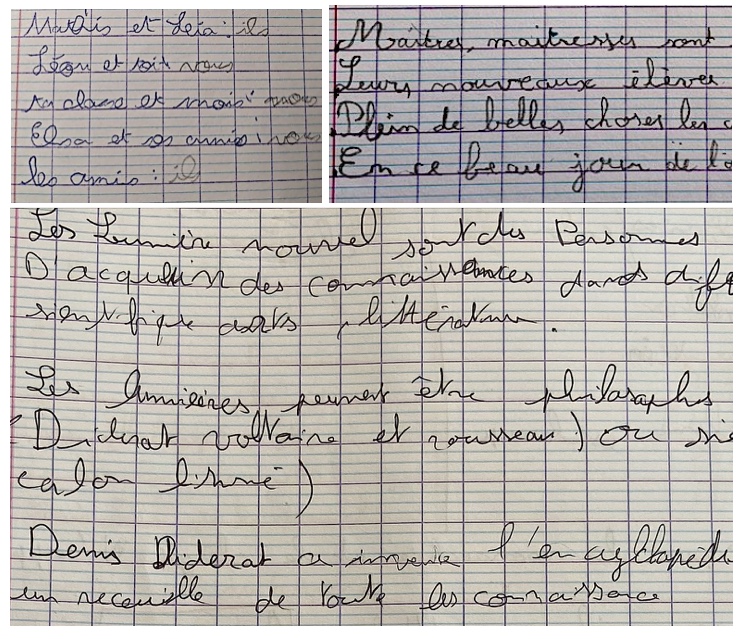 Mathis et Leïa : ils
Léon et toi : vous
ta classe et moi : nous
Elsa et ses amis : nous
les amis : il
Maîtres, maîtresses sont
Leurs nouveaux élèves
Plein de belles choses les
En ce beau jour de
Les Lumière nouvel sont des Personnes
D'acquérir des connaissances dans
sientifique arts, littérature.
Les lumières peuvent être philosophs
(Diderot voltaire et rousseau) ou
Denis Diderot a invente l'encyclopédi
un recueille de toute les connaissance